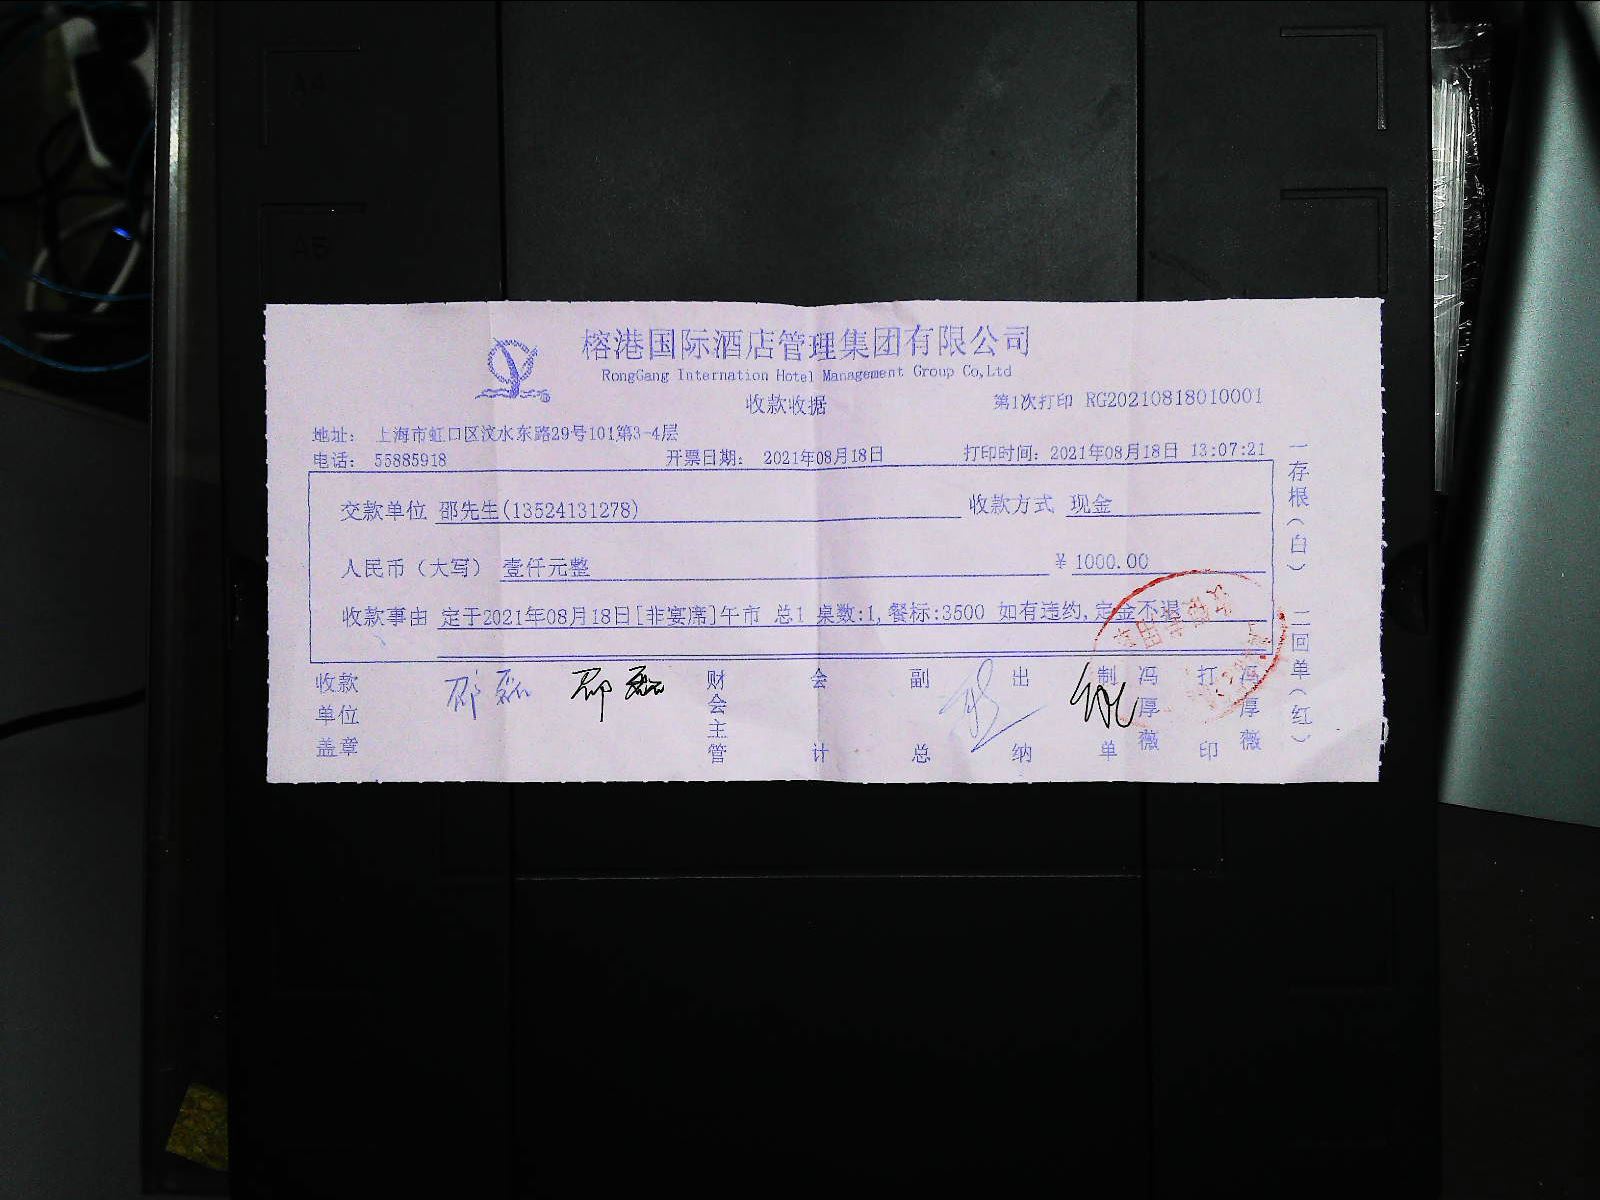 A4
A5
榕港国际酒店管理集团有限公司
RongGang Internation Hotel Management Group Co,Ltd
收款收据
第1次打印 RG20210818010001
地址: 上海市虹口区汶水东路29号101第3-4层
电话: 55885918 开票日期: 2021年08月18日 打印时间: 2021年08月18日 13:07:21
交款单位 邵先生(13524131278) 收款方式 现金
人民币(大写) 壹仟元整 ¥ 1000.00
收款事由 定于2021年08月18日[非宴席]午市 总1 桌数:1,餐标:3500 如有违约,定金不退
收款单位盖章 邵磊 邵磊 财会主管 会计 副总 出纳 制单 冯厚薇 打印 冯厚薇
一存根(白) 二回单(红)